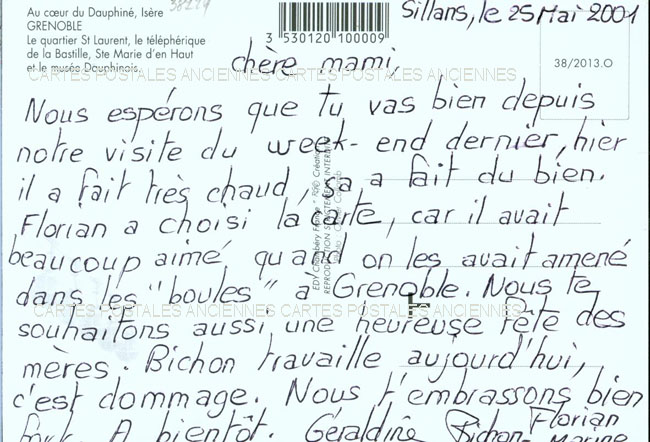 Au cœur du Dauphiné, Isère
GRENOBLE
Le quartier St Laurent, le téléphérique
de la Bastille, Ste Marie d'en Haut
et le musée Dauphinois.
3 530120 100009
38/2013.O
Sillans, le 25 Mai 2001
chère mami,
CARTES POSTALES ANCIENNES CARTES POSTALES ANCIENNES
Nous espérons que tu vas bien depuis
notre visite du week-end dernier, hier
il a fait très chaud, sa a fait du bien.
Florian a choisi la carte, car il avait
beaucoup aimé quand on les avait amené
dans les "boules" à Grenoble. Nous te
CARTES POSTALES ANCIENNES CARTES POSTALES ANCIENNES
souhaitons aussi une heureuse fête des
mères. Bichon travaille aujourd'hui,
c'est dommage. Nous t'embrassons bien
fort. A bientôt. Géraldine Bichon Florian
REPRODUCTION INTERDITE